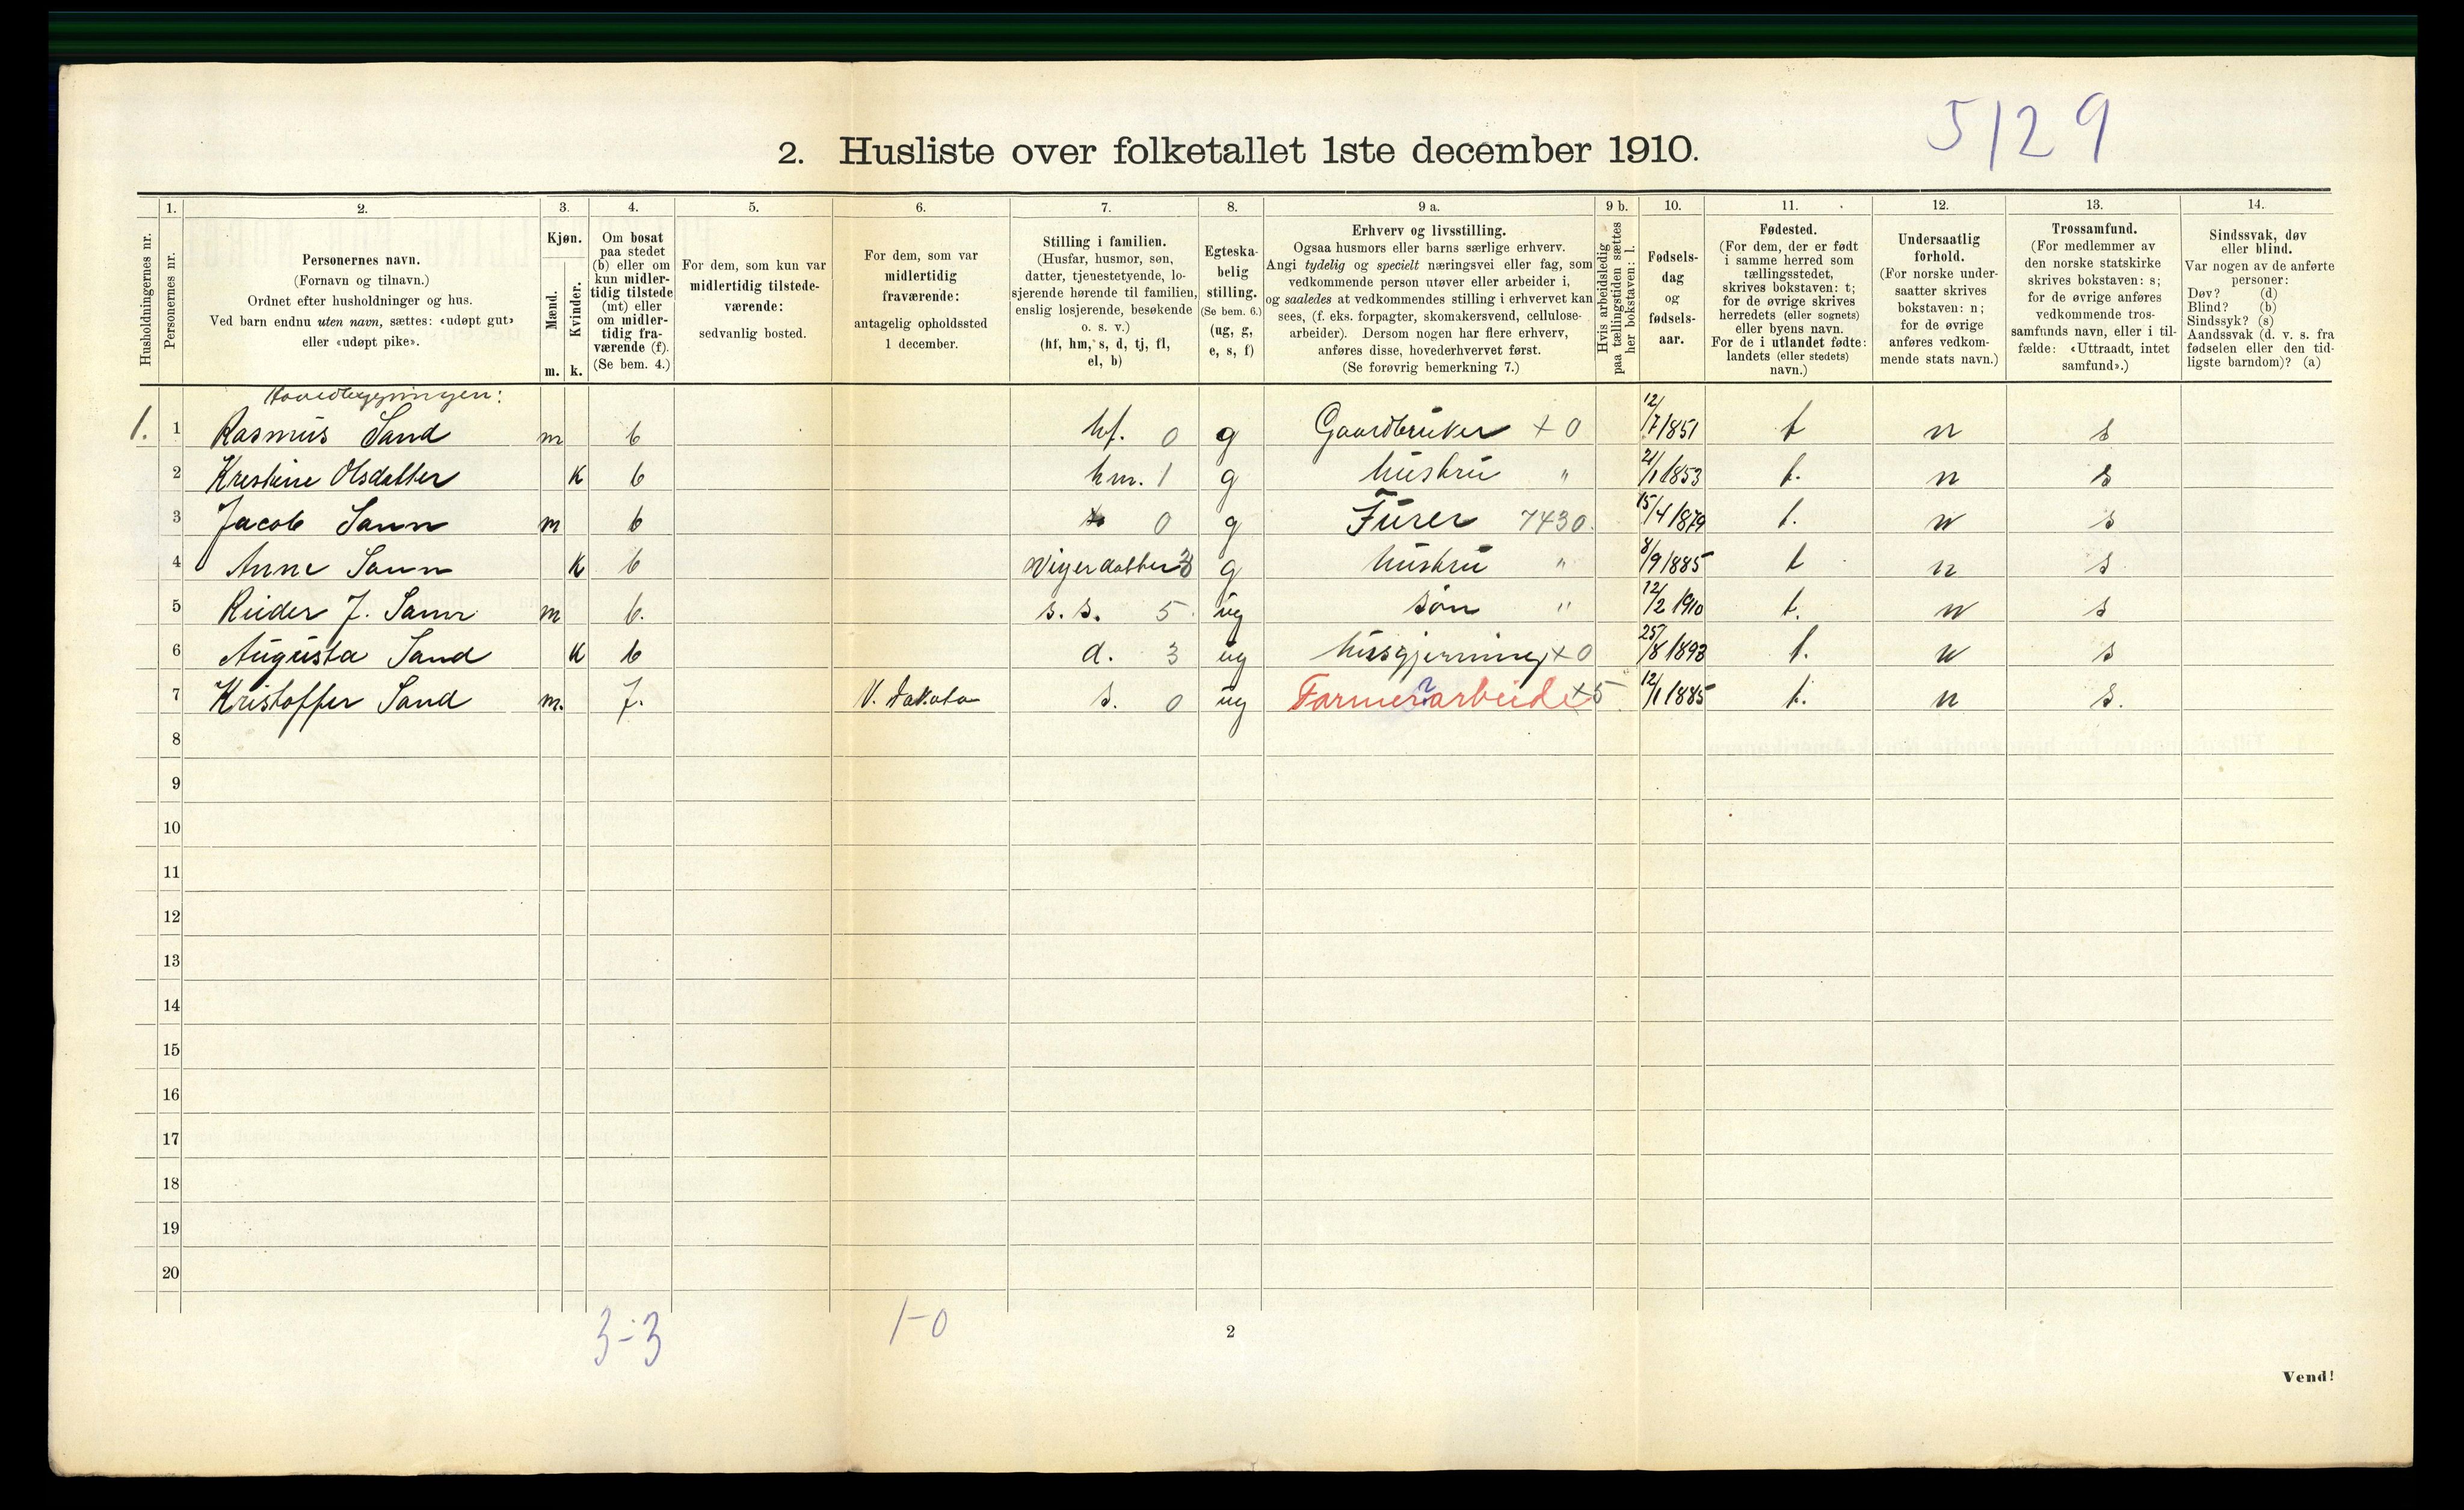 5129
2. Husliste over folketallet 1ste december 1910.
Husholdningernes nr.
1.
Personernes nr.
2.
Personernes navn.
(Fornavn og tilnavn.)
Ordnet efter husholdninger og hus.
Ved barn endnu uten navn, sættes: «udøpt gut»
eller «udøpt pike».
3.
Kjøn.
Mænd.
Kvinder.
m. k.
4.
Om bosat
paa stedet
(b) eller om
kun midler-
tidig tilstede
(mt) eller
om midler-
tidig fra-
værende (f).
(Se bem. 4.)
5.
For dem, som kun var
midlertidig tilstede-
værende:
sedvanlig bosted.
6.
For dem, som var
midlertidig
fraværende:
antagelig opholdssted
1 december.
7.
Stilling i familien.
(Husfar, husmor, søn,
datter, tjenestetyende, lo-
sjerende hørende til familien,
enslig losjerende, besøkende
o. s. v.)
(hf, hm, s, d, tj, fl,
el, b)
8.
Egteska-
belig
stilling.
(Se bem. 6.)
(ug, g,
e, s, f)
9 a.
Erhverv og livsstilling.
Ogsaa husmors eller barns særlige erhverv.
Angi tydelig og specielt næringsvei eller fag, som
vedkommende person utøver eller arbeider i,
og saaledes at vedkommendes stilling i erhvervet kan
sees, (f. eks. forpagter, skomakersvend, cellulose-
arbeider). Dersom nogen har flere erhverv,
anføres disse, hovederhvervet først.
(Se forøvrig bemerkning 7.)
9 b.
Hvis arbeidsledig
paa tællingstiden sættes
her bokstaven: l.
10.
Fødsels-
dag
og
fødsels-
aar.
11.
Fødested.
(For dem, der er født
i samme herred som
tællingsstedet,
skrives bokstaven: t;
for de øvrige skrives
herredets (eller sognets)
eller byens navn.
For de i utlandet fødte:
landets (eller stedets)
navn.)
12.
Undersaatlig
forhold.
(For norske under-
saatter skrives
bokstaven: n;
for de øvrige
anføres vedkom-
mende stats navn.)
13.
Trossamfund.
(For medlemmer av
den norske statskirke
skrives bokstaven: s;
for de øvrige anføres
vedkommende tros-
samfunds navn, eller i til-
fælde: «Uttraadt, intet
samfund».)
14.
Sindssvak, døv
eller blind.
Var nogen av de anførte
personer:
Døv? (d)
Blind? (b)
Sindssyk? (s)
Aandssvak (d. v. s. fra
fødselen eller den tid-
ligste barndom)? (a)
Hovedbygningen:
1. 1 Rasmus Sand m b hf. 0 g Gaardbruker + 0 12/7 1851 t n s
2 Kristine Olsdatter K b hm. 1 g hustru " 21/1 1853 t. n s
3 Jacob Sann m b 0 g Furer 7430. 15/4 1879 t. n s
4 Anne Sann K b 3 g hustru " 8/9 1885 t n s
5 J. Sann m b. s. s. 5 ug søn " 12/2 1910 t. n s
6 Augusta Sand K b d. 3 ug husgjerning + 0 25/8 1893 t. n s
7 Kristoffer Sand m. f. V. Dakota s. 0 ug Farmer?arbeide +5 12/1 1885 t. n s.
8
9
10
11
12
13
14
15
16
17
18
19
20
3-3 1-0
2
Vend!